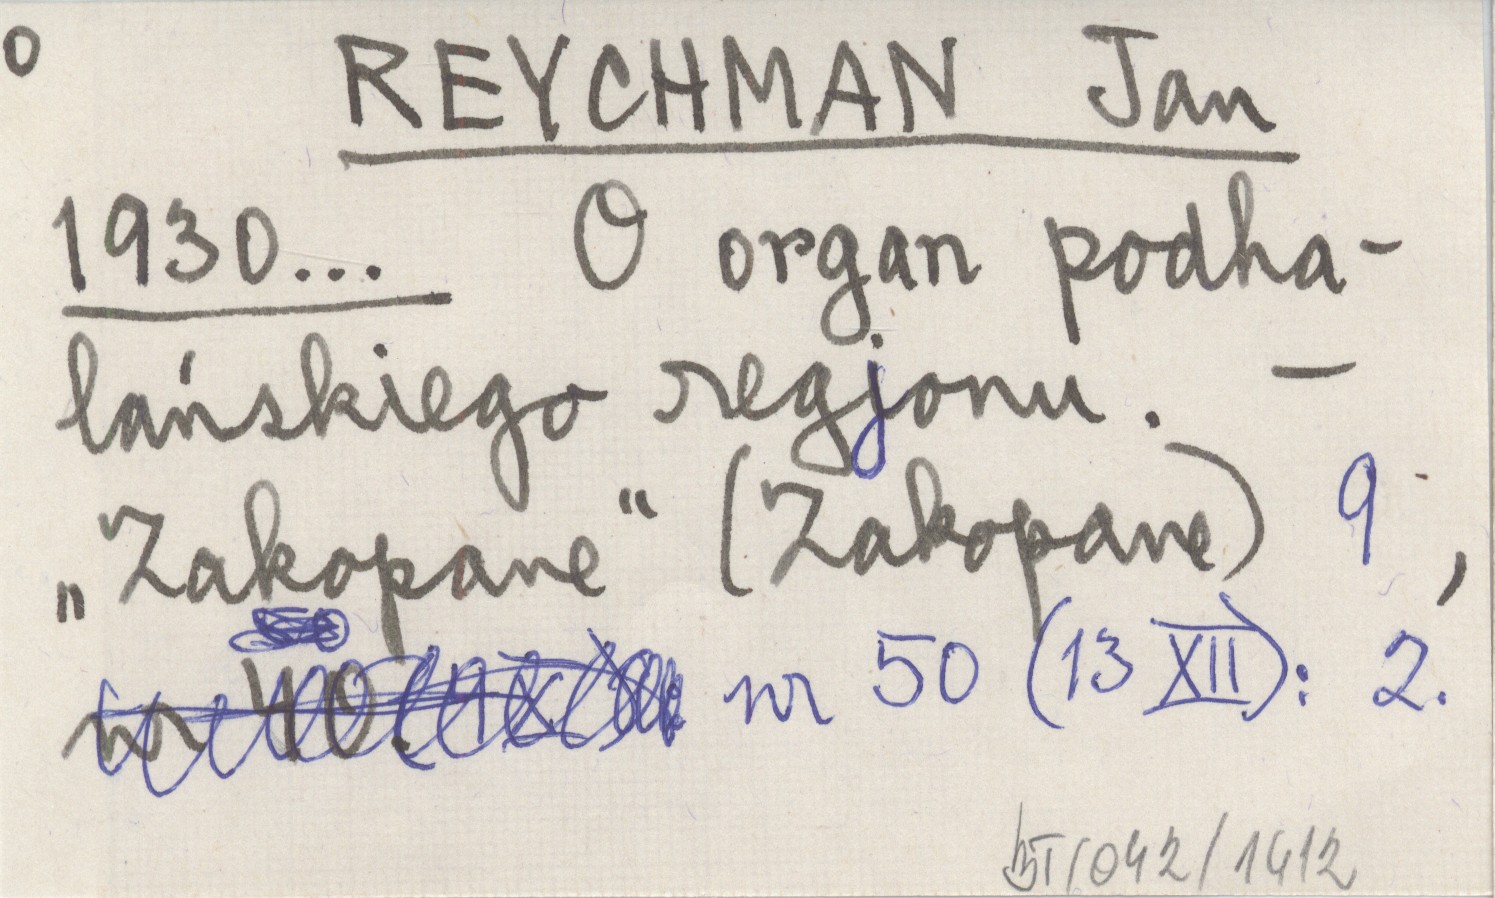 o
REYCHMAN Jan
1930... O organ podha-
lańskiego regjonu. —
„Zakopane" (Zakopane) 9,
nr 40. nr 50 (13 XII): 2.
/042/1412